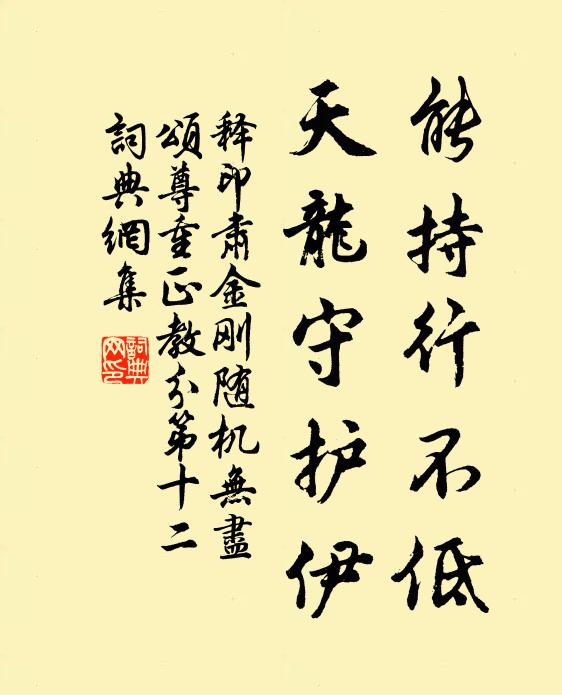 能持行不低
天龍守护伊
释印肃金刚随机無盡
頌尊重正教分第十二
詞典網集
詞典網印